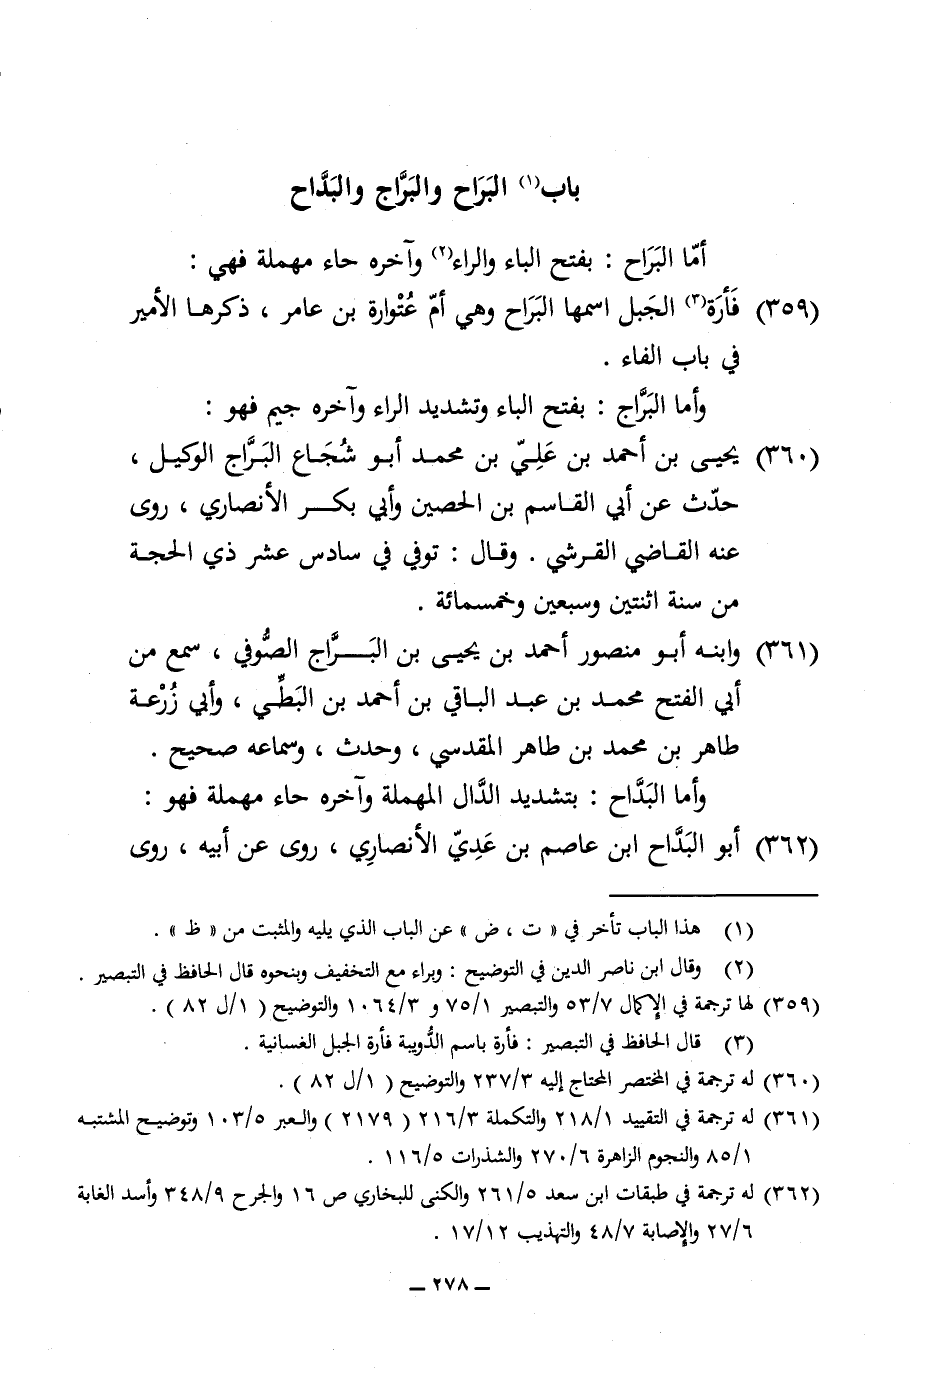 باب(١) البَرَاح والبَرَّاج والبَدَّاح
أمّا البَرَاح : بفتح الباء والراء(٢) وآخره حاء مهملة فهي :
(٣٥٩) فَأرَة(٣) الجَبل اسمها البَرَاح وهي أمّ عُتْوارة بن عامر ، ذكرها الأمير
في باب الفاء .
وأما البَرَّاج : بفتح الباء وتشديد الراء وآخره جيم فهو :
(٣٦٠) يحيى بن أحمد بن عَلِيّ بن محمد أبو شُجَاع البَرَّاج الوكيل ،
حدّث عن أبي القاسم بن الحصين وأبي بكر الأنصاري ، روى
عنه القاضي القرشي . وقال : توفي في سادس عشر ذي الحجة
من سنة اثنتين وسبعين وخمسمائة .
(٣٦١) وابنه أبو منصور أحمد بن يحيى بن البَرَّاج الصُّوفي ، سمع من
أبي الفتح محمد بن عبد الباقي بن أحمد بن البَطِّي ، وأبي زُرْعة
طاهر بن محمد بن طاهر المقدسي ، وحدث ، وسماعه صحيح .
وأما البَدَّاح : بتشديد الدَّال المهملة وآخره حاء مهملة فهو :
(٣٦٢) أبو البَدَّاح ابن عاصم بن عَدِيّ الأنصارِي ، روى عن أبيه ، روى
(١) هذا الباب تأخر في « ت ، ض » عن الباب الذي يليه والمثبت من « ظ » .
(٢) وقال ابن ناصر الدين في التوضيح : وبراء مع التخفيف وبنحوه قال الحافظ في التبصير .
(٣٥٩) لها ترجمة في الإكمال ٥٣/٧ والتبصير ٧٥/١ و ١٠٦٤/٣ والتوضيح ( ١/ل ٨٢ ) .
(٣) قال الحافظ في التبصير : فأرة باسم الدُّويبة فأرة الجبل الغسانية .
(٣٦٠) له ترجمة في المختصر المحتاج إليه ٢٣٧/٣ والتوضيح ( ١/ل ٨٢ ) .
(٣٦١) له ترجمة في التقييد ٢١٨/١ والتكملة ٢١٦/٣ ( ٢١٧٩ ) والعبر ١٠٣/٥ وتوضيح المشتبه
٨٥/١ والنجوم الزاهرة ٢٧٠/٦ والشذرات ١١٦/٥ .
(٣٦٢) له ترجمة في طبقات ابن سعد ٢٦١/٥ والكنى للبخاري ص ١٦ والجرح ٣٤٨/٩ وأسد الغابة
٢٧/٦ والإصابة ٤٨/٧ والتهذيب ١٧/١٢ .
ـ ٢٧٨ ـ